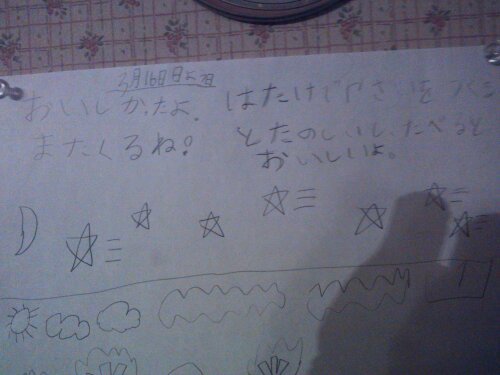 3月16日日よう日
おいしかったよ。
またくるね！
はたけでやさいをつくる
とたのしいし、たべると
おいしいよ。